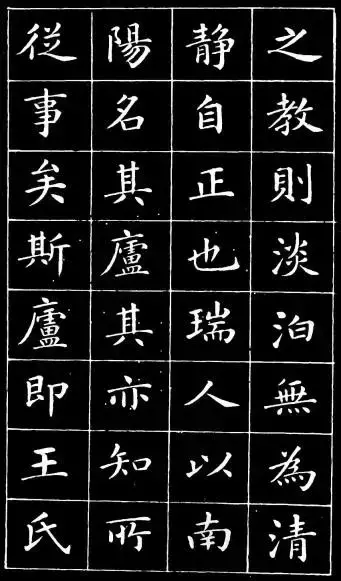 之教則淡泊無為清
静自正也瑞人以南
陽名其廬其亦知所
從事矣斯廬即王氏